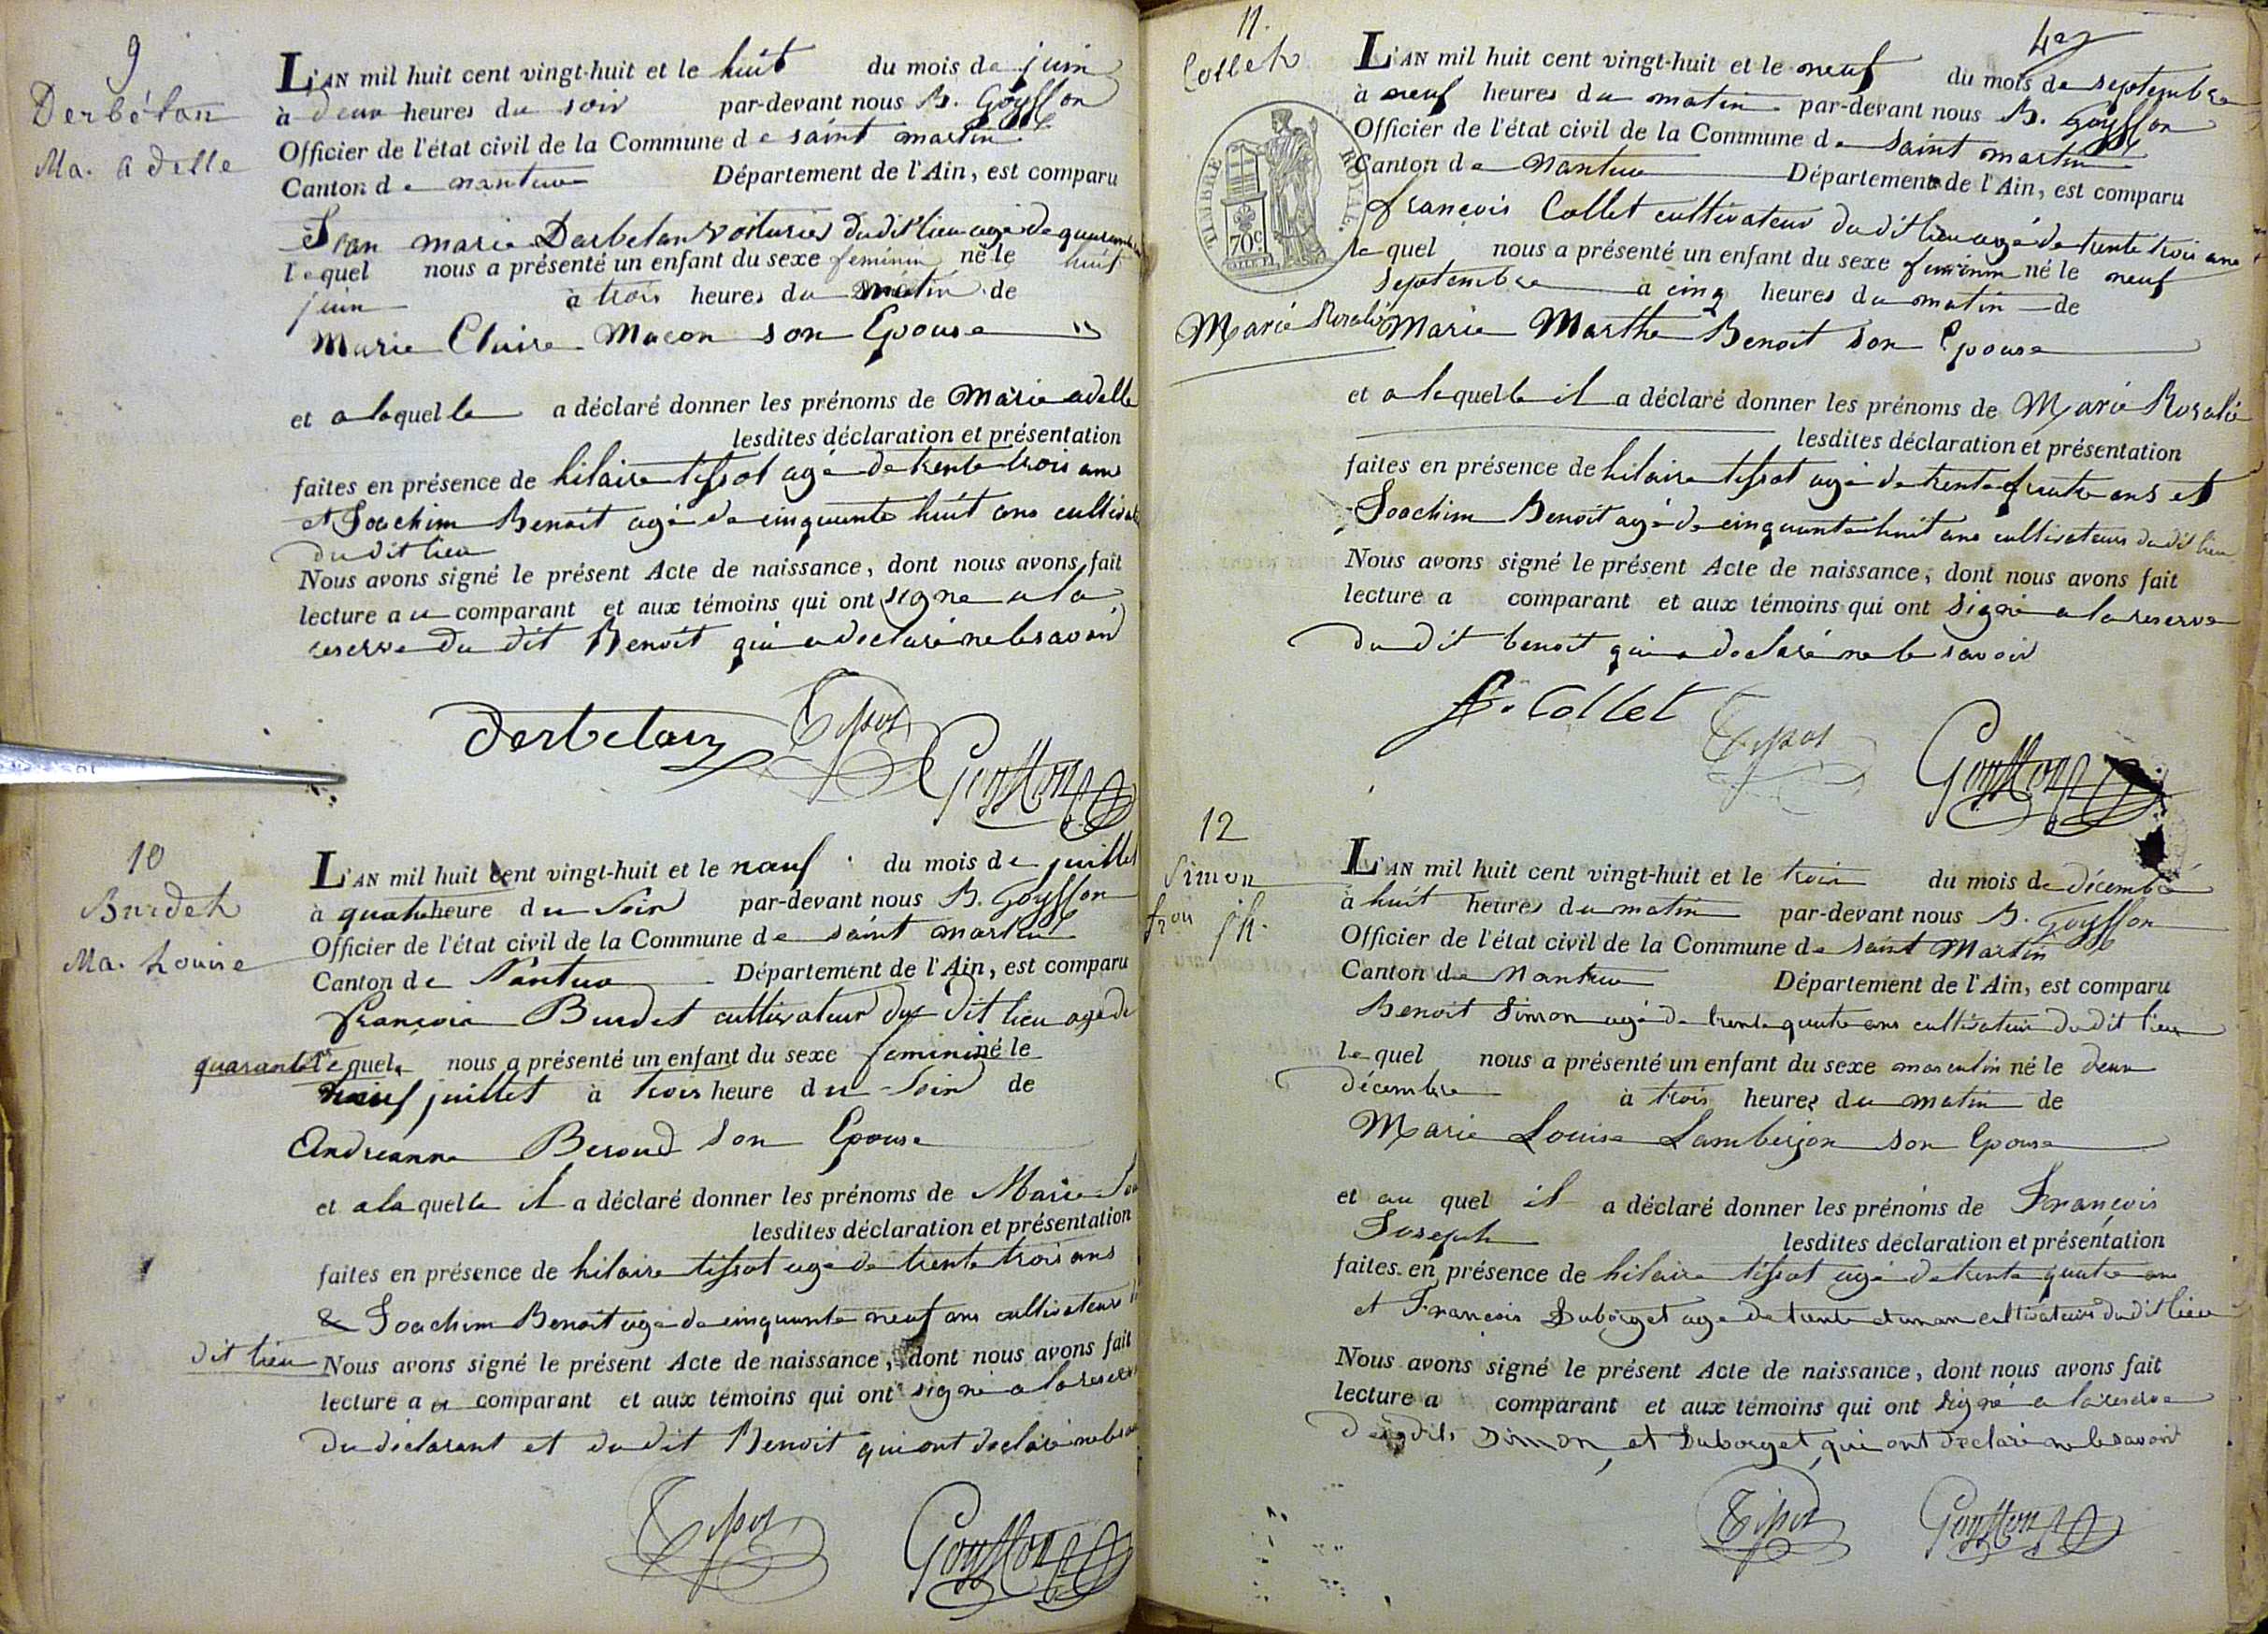 9
Derbélan
Ma. adelle
L'AN mil huit cent vingt-huit et le huit du mois de juin
à deux heures du soir par-devant nous B. Goyffon
Officier de l'état civil de la Commune de saint martin
Canton de nantua Département de l'Ain, est comparu
Jean marie Derbelan voiturier dudit lieu agé de quarante
lequel nous a présenté un enfant du sexe feminin né le huit
juin à trois heures du matin de
Marie Claire Macon son Epouse
et a laquelle a déclaré donner les prénoms de Marie adelle
lesdites déclaration et présentation
faites en présence de hilaire tissot agé de trente trois ans
et Joachim Benoit agé de cinquante huit ans cultivat
dudit lieu
Nous avons signé le présent Acte de naissance, dont nous avons fait
lecture au comparant et aux témoins qui ont signé a la
reserve du dit Benoit qui a declaré ne le savoir
Derbelan Tissot
Goyffon
10
Burdet
Ma. Louise
L'AN mil huit cent vingt-huit et le neuf du mois de juillet
à quatre heure du Soir par-devant nous B. Goyffon
Officier de l'état civil de la Commune de saint martin
Canton de Nantua Département de l'Ain, est comparu
françois Burdet cultivateur du dit lieu agé de
quarante lequel nous a présenté un enfant du sexe feminin né le
neuf juillet à trois heure du Soir de
Andreanne Beroud son Epouse
et a laquelle il a déclaré donner les prénoms de Marie Lou
lesdites déclaration et présentation
faites en présence de hilaire tissot agé de trente trois ans
& Joachim Benoit agé de cinquante neuf ans cultivateurs
dit lieu Nous avons signé le présent Acte de naissance, dont nous avons fait
lecture au comparant et aux témoins qui ont signé a la reserv
du déclarant et dudit Benoit qui ont declaré ne le sav
Tissot Goyffon
11.
Collet
42
TIMBRE ROYAL.
70c
L'AN mil huit cent vingt-huit et le neuf du mois de septembre
à neuf heures du matin par-devant nous B. Goyffon
Officier de l'état civil de la Commune de saint martin
Canton de nantua Département de l'Ain, est comparu
françois Collet cultivateur dudit lieu agé de trente trois ans
lequel nous a présenté un enfant du sexe feminin né le neuf
septembre à cinq heures du matin de
Marie Rosalie Marie Marthe Benoit son Epouse
et a laquelle il a déclaré donner les prénoms de Marie Rosalie
lesdites déclaration et présentation
faites en présence de hilaire tissot agé de trente quatre ans et
Joachim Benoit agé de cinquante huit ans cultivateurs dudit lieu
Nous avons signé le présent Acte de naissance, dont nous avons fait
lecture a comparant et aux témoins qui ont signé a la reserve
du dit benoit qui a declaré ne le savoir
f. Collet Tissot
Goyffon
12
Simon
fçois jh.
L'AN mil huit cent vingt-huit et le trois du mois de décembre
à huit heures du matin par-devant nous B. Goyffon
Officier de l'état civil de la Commune de saint Martin
Canton de Nantua Département de l'Ain, est comparu
Benoit Simon agé de trente quatre ans cultivateur dudit lieu
lequel nous a présenté un enfant du sexe masculin né le deux
décembre à trois heures du matin de
Marie Louise Lamberjon son Epouse
et au quel il a déclaré donner les prénoms de François
Joseph lesdites déclaration et présentation
faites en présence de hilaire tissot agé de trente quatre ans
et François Duborget agé de trente et un an cultivateurs dudit lieu
Nous avons signé le présent Acte de naissance, dont nous avons fait
lecture a comparant et aux témoins qui ont signé a la reserve
desdits Simon et Duborget qui ont declaré ne le savoir
Tissot Goyffon